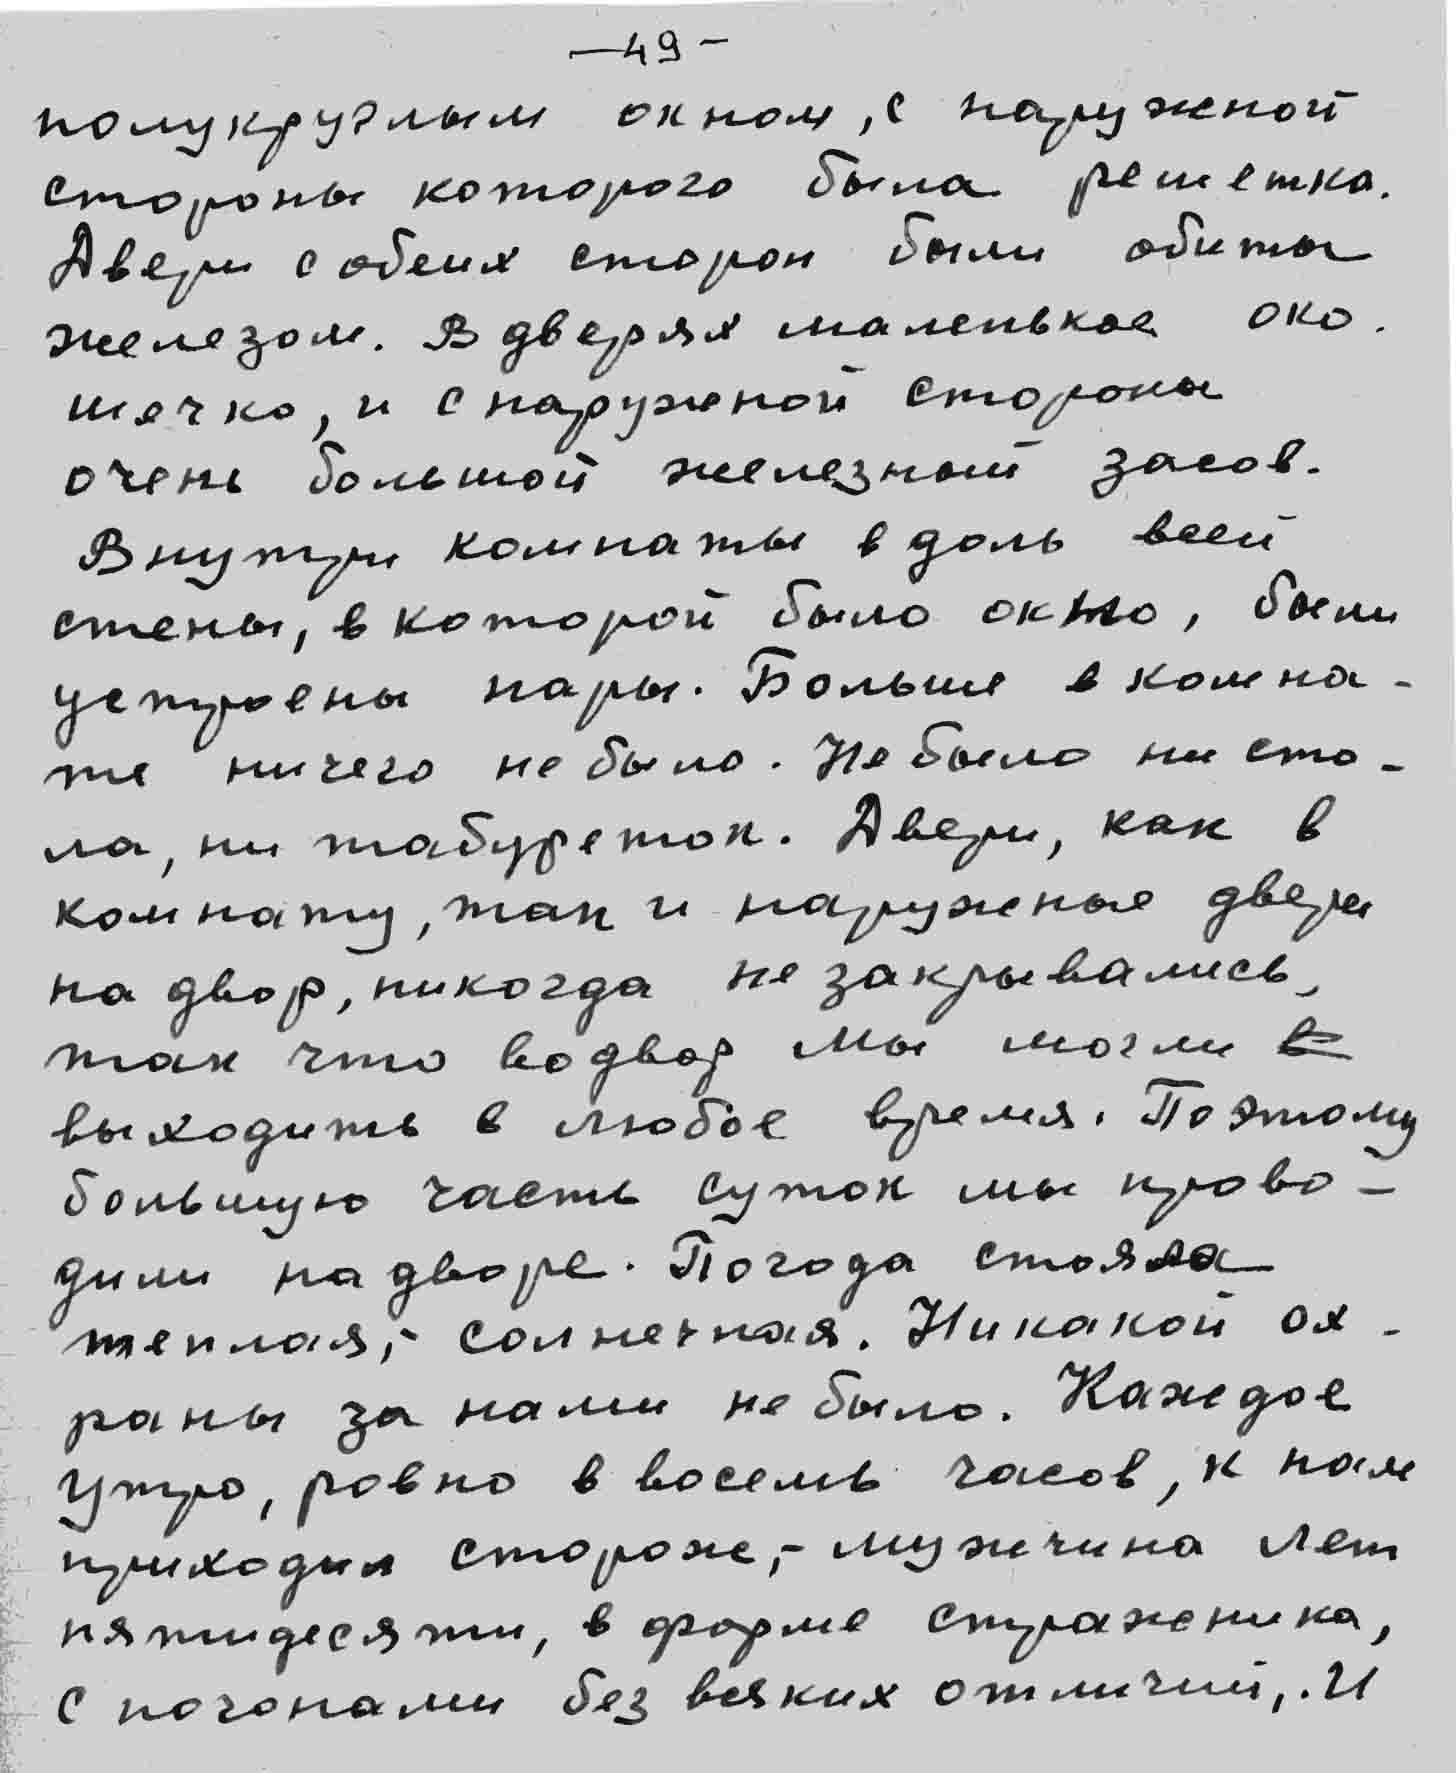 —49—
полукруглым окном, с наружной
стороны которого была решетка.
Двери с обеих сторон были обиты
железом. В дверях маленькое око-
шечко, и с наруженой стороны
очень большой железный засов.
Внутри комнаты вдоль всей
стены, в которой было окно, были
устроены нары. Больше в комна-
те ничего не было. Не было ни сто-
ла, ни табуреток. Двери, как в
комнату, так и наружные двери
на двор, никогда не закрывались,
так что во двор мы могли в
выходить в любое время. Поэтому
большую часть суток мы прово-
дили на дворе. Погода стояла
теплая,- солнечная. Никакой ох-
раны за нами не было. Каждое
утро, ровно в восемь часов, к нам
приходил сторож,- мужчина лет
пятидесяти, в форме стражника,
с погонами без всяких отличий,. И